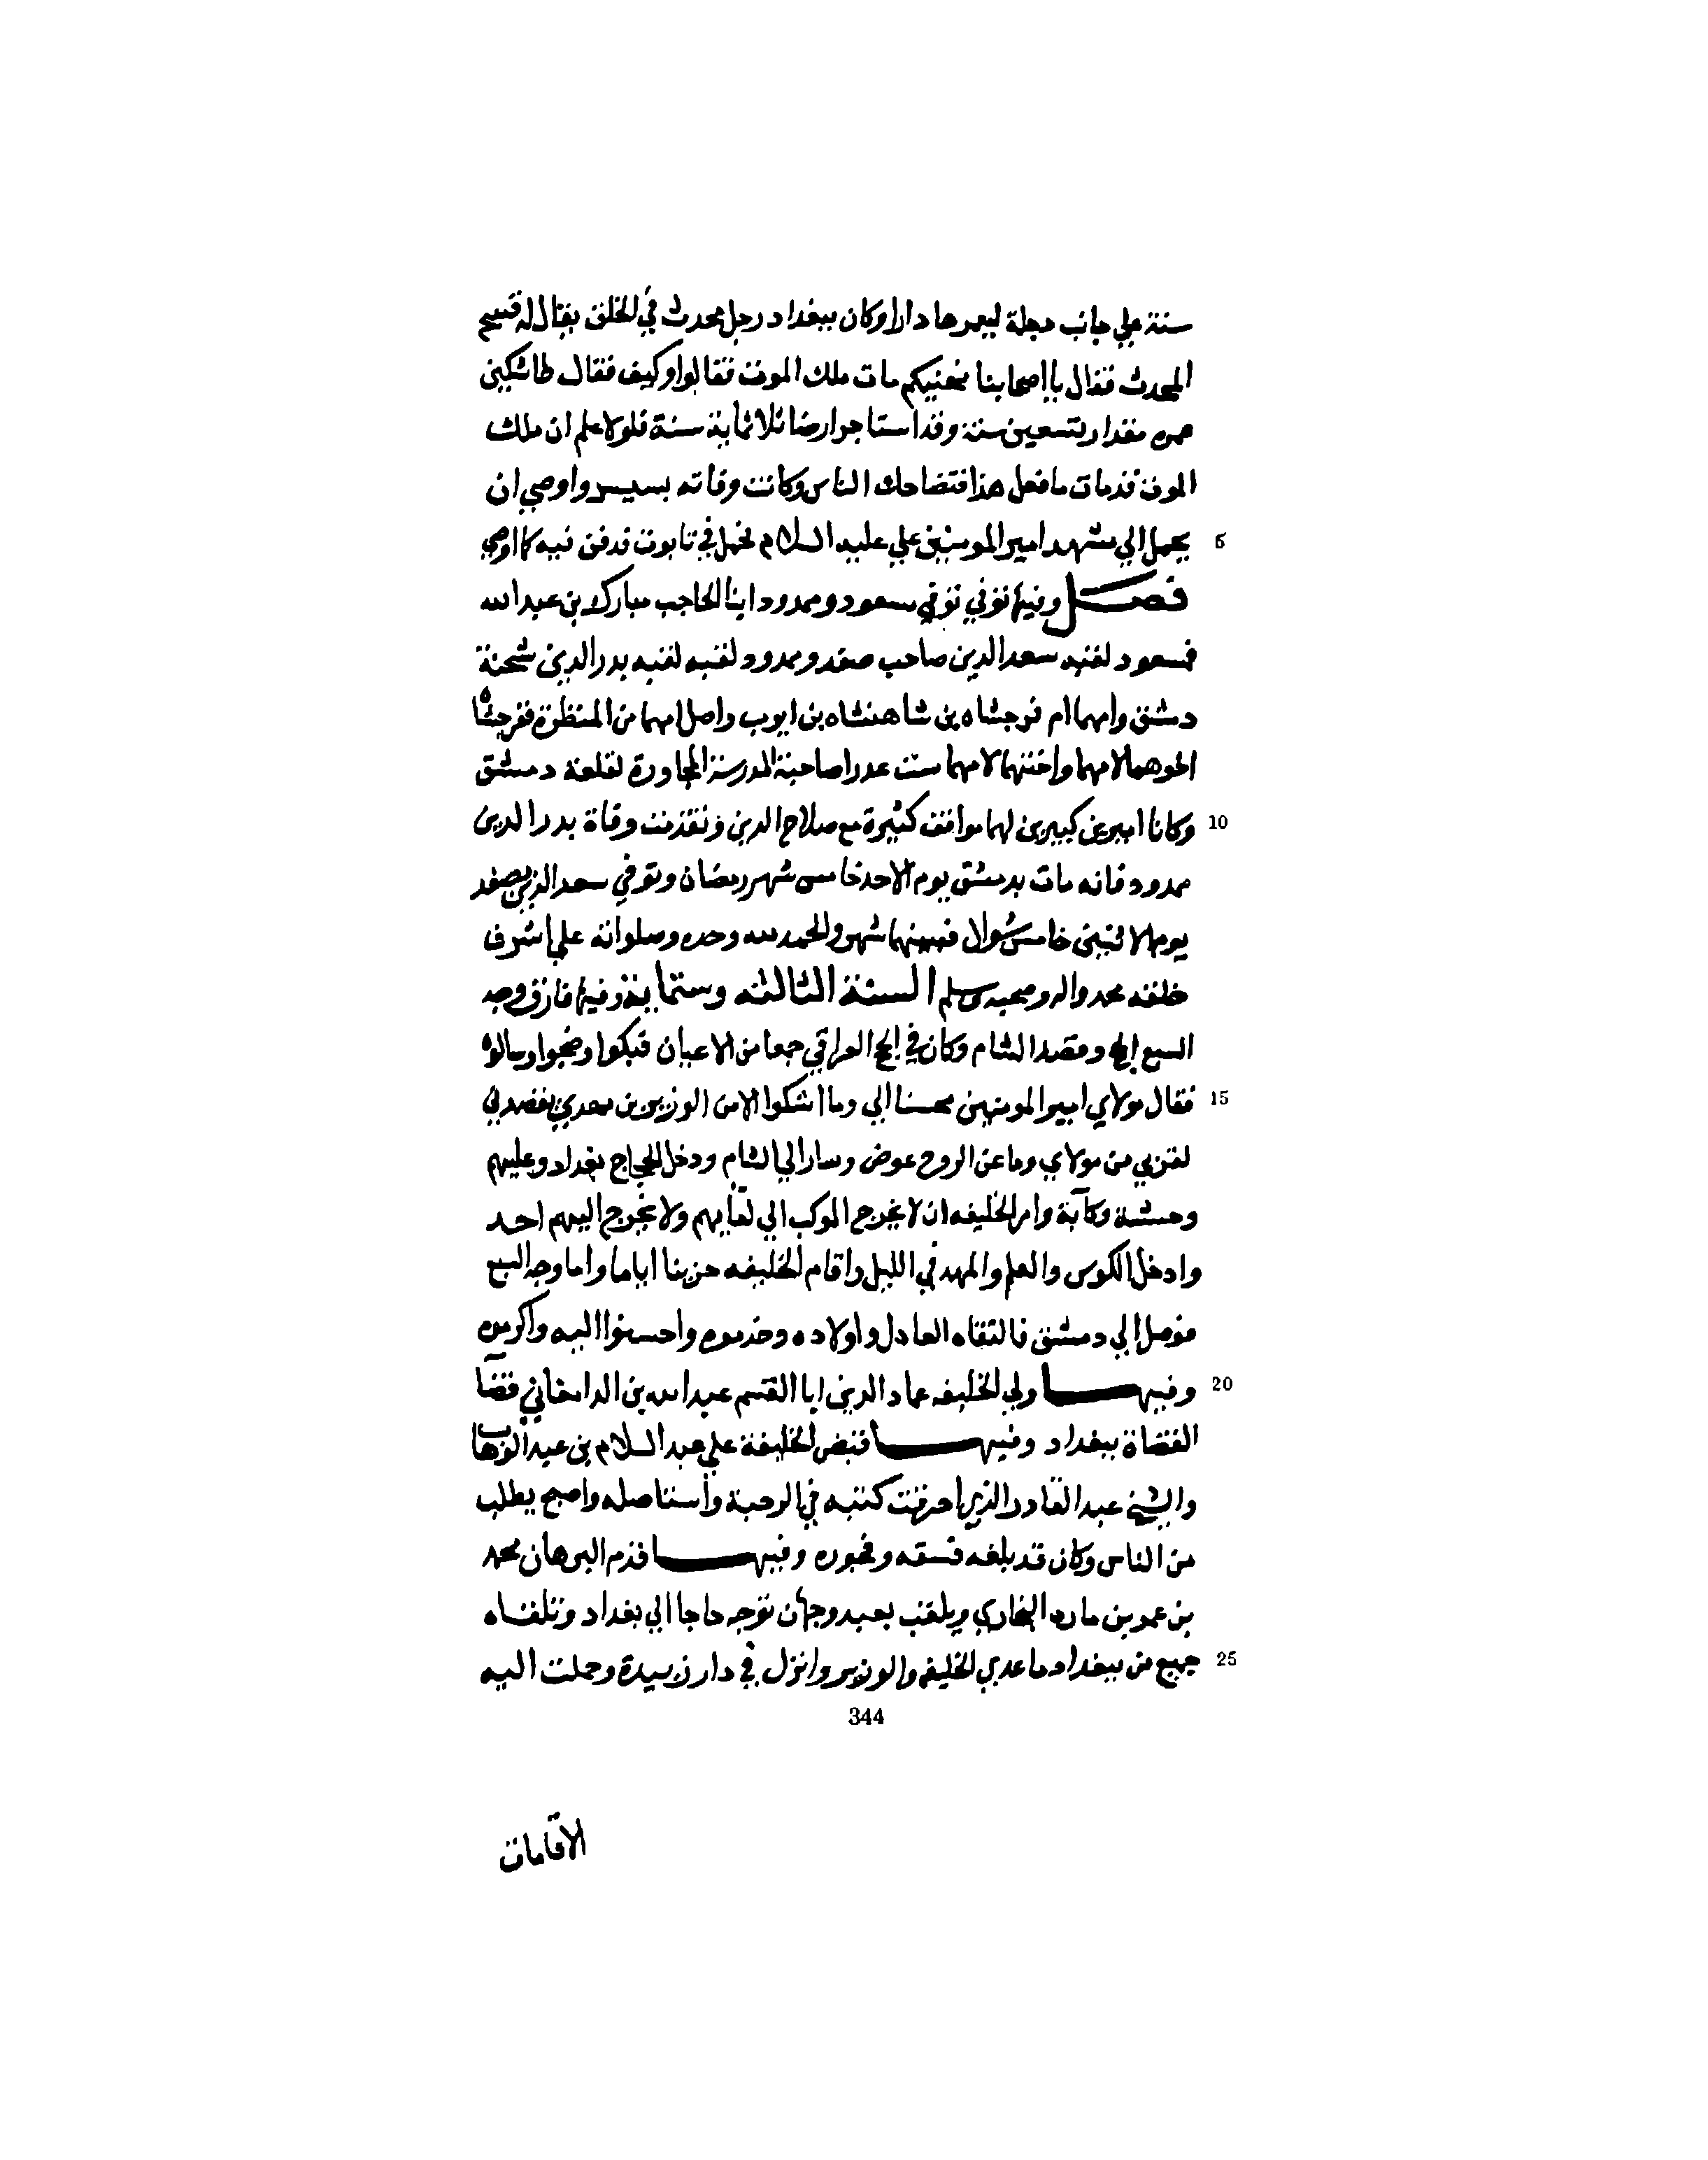 سنة علي جانب دجلة ليعمرها دارا وكان ببغداد رجل محدث في الخلق يقال له قسيم
المحدث فقال يا اصحابنا نهنيكم مات ملك الموت فقالوا وكيف فقال طاشكين
عمره مقدار تسعين سنة وقد استاجر ارضا ثلاثماية سنة فلولا علم ان ملك
الموت قد مات ما فعل هذا فتضاحك الناس وكانت وفاته بسيس واوصي ان
5 يحمل الي مشهد امير المومنين علي عليه السلام فحمل في تابوت فدفن فيه كما اوصي
فصل وفيها توفي توفي مسعود وممدود ابنا الحاجب مبارك بن عبد الله
فمسعود لقبه سعد الدين صاحب صفد وممدود لقبه لقبه بدر الدين شحنة
دمشق وامهما ام فرجشاه بن شاهنشاه بن ايوب واصل امهما من المنظرة ففرجشاه
اخوهما لامهما واختهما لامهما ست عدرا صاحبة المدرسة المجاورة لقلعة دمشق
10 وكانا اميرين كبيرين لهما مواقف كثيرة مع صلاح الدين وتقدمت وفاة بدر الدين
ممدود فانه مات بدمشق يوم الاحد خامس شهر رمضان وتوفي سعد الدين بصفد
يوم الاثنين خامس شوال فبينهما شهر والحمد لله وحده وصلواته علي اشرف
خلقه محمد واله وصحبه وسلم السنة الثالثة وستماية وفيها فارق وجه
السبع الحج وقصد الشام وكان في الحج العراقي جمعا من الاعيان فبكوا وضجوا وسالوه
15 فقال مولاي امير المومنين محسنا الي وما اشكوا الا من الوزير بن مهدي يقصدني
لقربي من مولاي وما عن الروح عوض وسار الي الشام ودخل الحجاج بغداد وعليهم
وحشة وكآبة وامر الخليفه ان لا يخرج الموكب الي لقايهم ولا يخرج اليهم احد
وادخل الكوس والعلم والمهد في الليل واقام الخليفه حزينا اياما واما وجه السبع
فوصل الي دمشق فالتقاه العادل واولاده وخدموه واحسنوا اليه واكرموه
20 وفيها ولي الخليفه عماد الدين ابا القسم عبد الله بن الدامغاني قضآ
القضاة ببغداد وفيها قبض الخليفة علي عبد السلام بن عبد الوهاب
والشيخ عبد القادر الذي احرقت كتبه في الرحبة وأستاصله واصبح يطلب
من الناس وكان قد بلغه فسقه وفجوره وفيها قدم البرهان محمد
بن عمر بن ماره البخاري ويلقب بصدر جهان توجه حاجا الي بغداد وتلقاه
25 جميع من ببغداد ما عدي الخليفه والوزير وانزل في دار زبيدة وحملت اليه
344
الاقامات